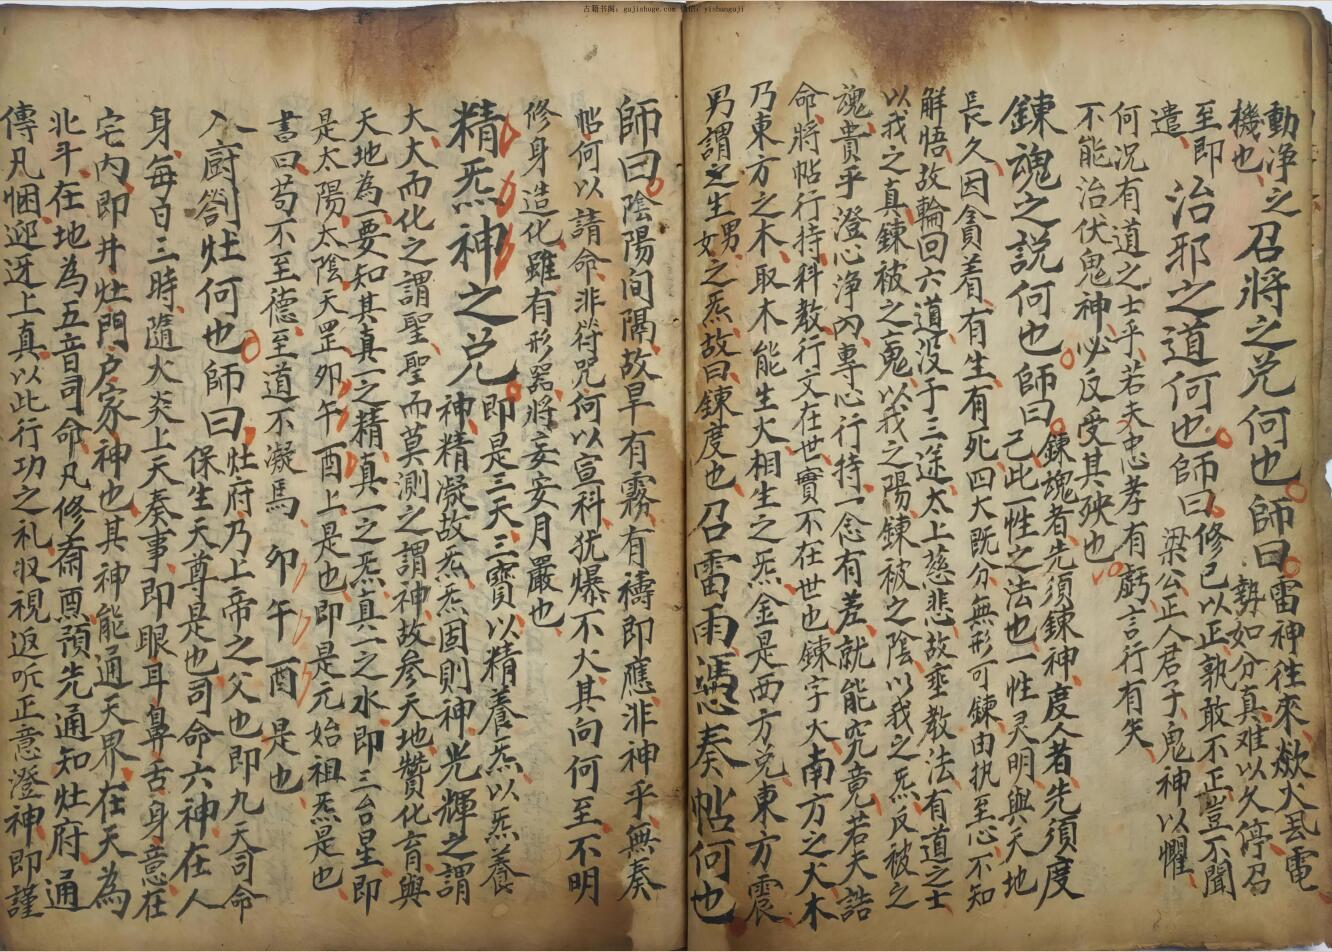 古籍书阁：gujishuge.com 微信：yishanguji
動净之召將之兑何也師曰雷神往來歘火瓦電
機也勢如分真难以久停召
至即遣治邪之道何也師曰修己以正孰敢不正豈不聞
梁公正人君子鬼神以懼
何况有道之士乎若夫忠孝有虧言行有失
不能治伏鬼神必反受其殃也
鍊魂之説何也師曰鍊魂者先須鍊神度人者先須度
己此一性之法也一性灵明與天地
長久因貪着有生有死四大既分無形可鍊由执至心不知
解悟故輪回六道没于三途太上慈悲故垂教法有道之士
以我之真鍊被之鬼以我之陽鍊被之陰以我之炁反被之
魂貴乎澄心净内專心行持一念有差就能究竟若夫誥
命將帖行持科教行文在世實不在世也鍊字火南方之火木
乃東方之木取木能生火相生之炁金是西方兑東方震
男謂之生男女之炁故曰鍊度也召雷雨憑奏帖何也
師曰陰陽间隔故旱有霧有禱即應非神乎無奏
帖何以請命非符咒何以宣科犹爆不火其向何至不明
修身造化雖有形器將妄妄月嚴也
精炁神之兑即是三天三寳以精養炁以炁養
神精凝故炁炁固則神光輝之謂
大大而化之謂聖聖而莫測之謂神故参天地贊化育與
天地為一要知其真一之精真一之炁真一之水即三台星即
是太陽太陰天罡卯午酉上是也即是元始祖炁是也
書曰苟不至德至道不凝焉卯午酉是也
入廚劄灶何也師曰灶府乃上帝之父也即九天司命
保生天尊是也司命六神在人
身每日三時隨火炎上天奏事即眼耳鼻舌身意在
宅内即井灶門户家神也其神能通天界在天為
北斗在地為五音司命凡修斋酉預先通知灶府通
傳凡悃迎迓上真以此行功之礼収視返听正意澄神即謹